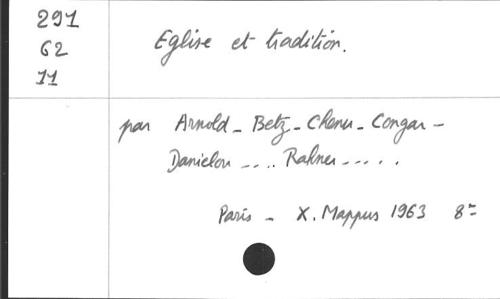 291
62
11
Eglise et tradition.
par Arnold - Betz - Chenu - Congar -
Danielou - - . . Rahner - - . . .
Paris - X. Mappus 1963 8°